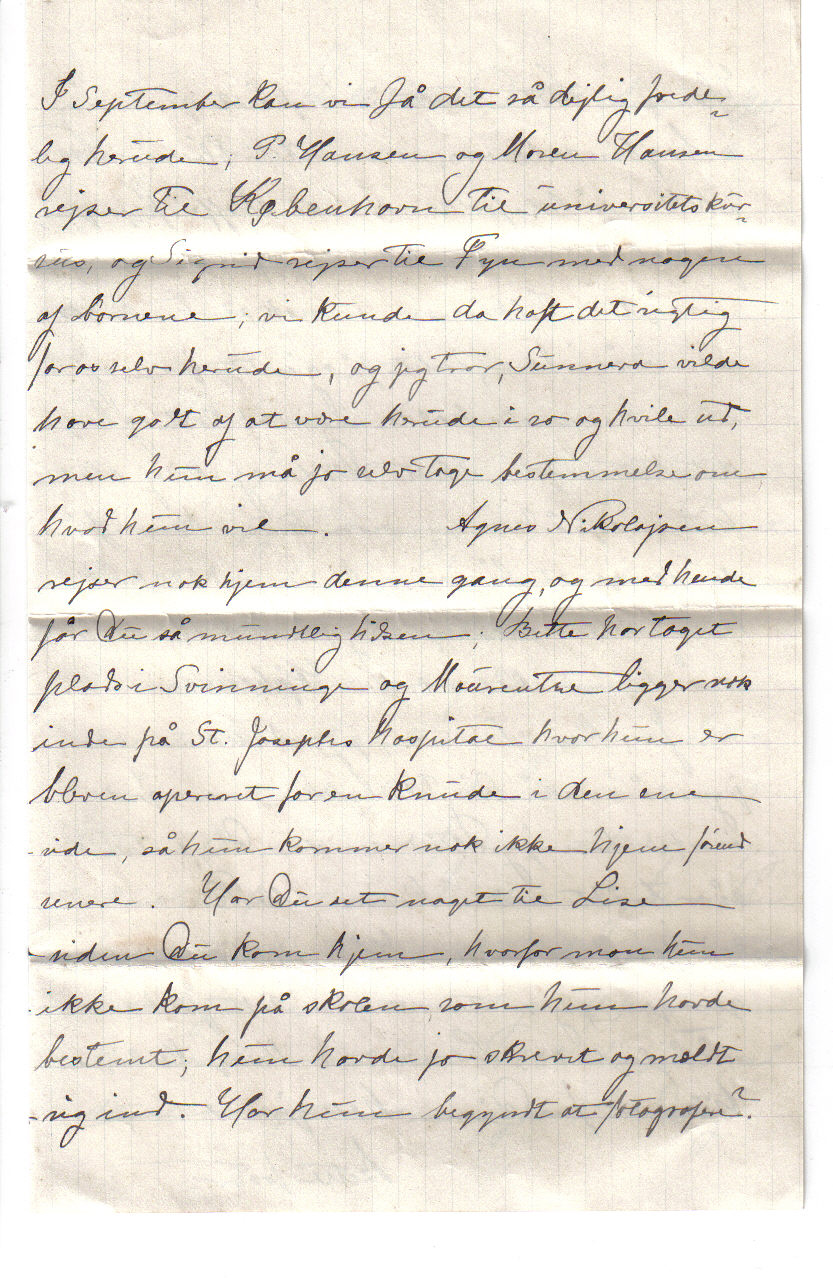 I September kan vi få det så dejlig frede-
lig herude; P. Hansen og Maren Hansen
rejser til København til universitetskur-
sus, og Sigrid rejser til Fyn med nogen
af børnene; vi kunde da haft det rigtig
for os selv herude, og jeg tror, Sunneva vilde
have godt af at være herude i ro og hvile ud,
men hun må jo selv tage bestemmelse om
hvad hun vil. Agnes Nikolajsen
rejser nok hjem denne gang, og med hende
får Du så mundtlig hilsen; Bitte har taget
plads i Svinninge og ligger nok
inde på St. Josephs hospital hvor hun er
bleven opereret for en knude i den ene
side, så hun kommer nok ikke hjem førend
senere. Har Du set noget til Lise
siden Du kom hjem, hvorfor mon hun
ikke kom på skolen, som hun havde
bestemt; hun havde jo skrevet og meldt
sig ind. Har hun begyndt at fotografere?